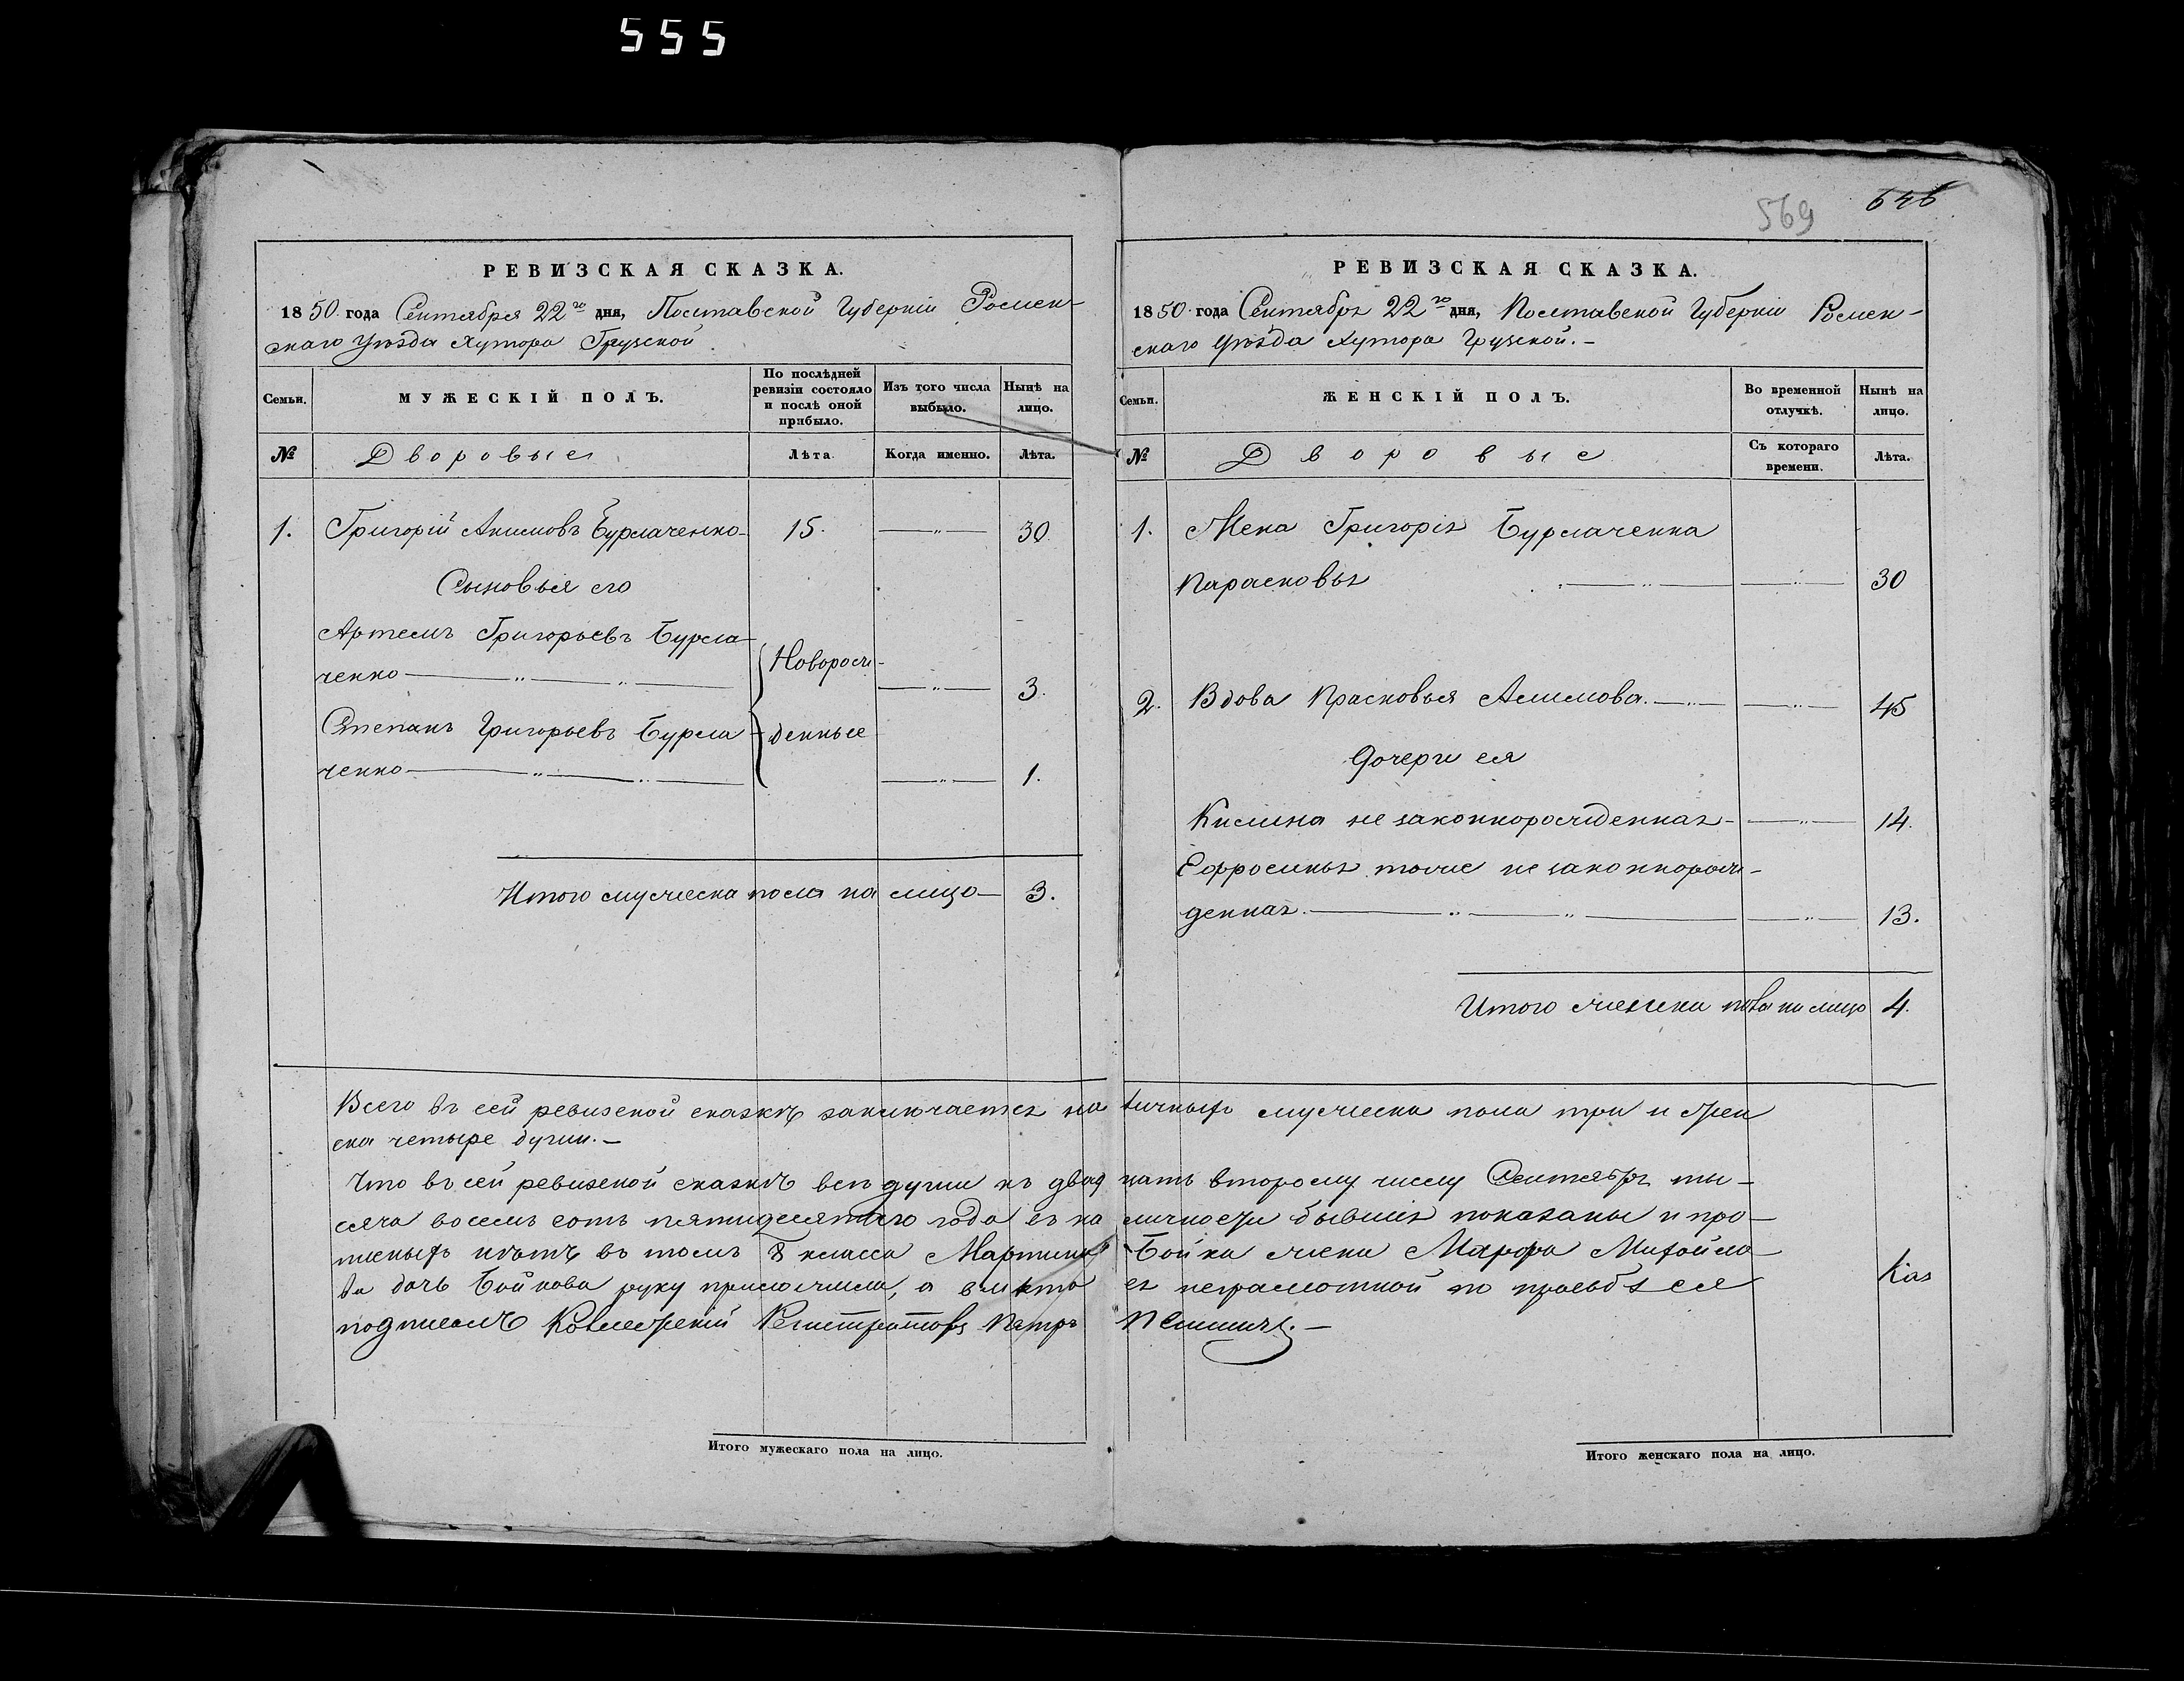 555
569 646
РЕВИЗСКАЯ СКАЗКА.
1850 года Сентября 22го дня, Полтавской Губерніи Ромен-
скаго Уѣзда Хутора Грузской.
Семьи. МУЖЕСКІЙ ПОЛЪ. По послѣдней ревизіи состояло и послѣ оной прибыло. Изъ того числа выбыло. Нынѣ на лицо.
№ Дворовые Лѣта. Когда именно. Лѣта.
1. Григорій Акимовъ Бурлаченко 15. —"— 30.
Сыновья его
Артемъ Григорьевъ Бурла-
ченко Новорож- —"— 3.
Степанъ Григорьевъ Бурла- денные
ченко —"— 1.
Итого мужеска пола на лицо 3.
РЕВИЗСКАЯ СКАЗКА.
1850 года Сентября 22го дня, Полтавской Губерніи Ромен-
скаго Уѣзда Хутора Грузской.—
Семьи. ЖЕНСКІЙ ПОЛЪ. Во временной отлучкѣ. Нынѣ на лицо.
№ Дворовые Съ котораго времени. Лѣта.
1. Жена Григорія Бурлаченка
Парасковья —"— 30
2. Вдова Прасковья Алимова. —"— 45
Дочери ея
незаконнорожденная —"— 14.
Ефросинья тоже незаконнорож-
денная. —"— 13.
Итого женска пола на лицо 4.
Всего въ сей ревизской сказкѣ заключается на личныхъ мужеска пола три и жен
ска четыре души.—
Что въ сей ревизской сказкѣ всѣ души къ двад цать второму числу Сентября ты-
сяча восемь сотъ пятидесятого года въ на личности бывшія показаны и про-
писныхъ нѣтъ въ томъ 8 класса Мартина Бойка жена Марфа Михайло-
ва дочь Бойкова руку приложила, а вмѣсто ея неграмотной по прозьбѣ ея
подписалъ Коллежскій Регистраторъ Петръ
Каз
Итого мужескаго пола на лицо.
Итого женскаго пола на лицо.